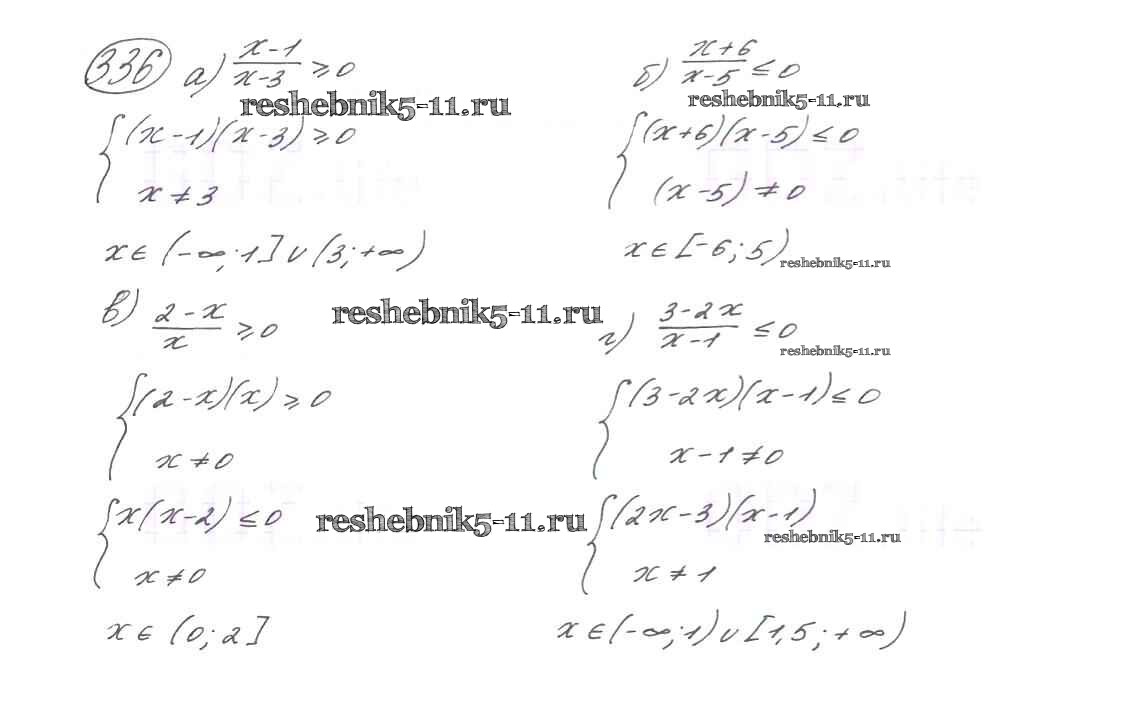 336 а) (x-1)/(x-3) ≥ 0
reshebnik5-11.ru
{(x-1)(x-3) ≥ 0
x ≠ 3
x ∈ (-∞; 1] ∪ (3; +∞)
б) (x+6)/(x-5) ≤ 0
reshebnik5-11.ru
{(x+6)(x-5) ≤ 0
(x-5) ≠ 0
x ∈ [-6; 5)
reshebnik5-11.ru
в) (2-x)/x ≥ 0
reshebnik5-11.ru
{(2-x)(x) ≥ 0
x ≠ 0
{x(x-2) ≤ 0
reshebnik5-11.ru
x ≠ 0
x ∈ (0; 2]
г) (3-2x)/(x-1) ≤ 0
reshebnik5-11.ru
{(3-2x)(x-1) ≤ 0
x-1 ≠ 0
{(2x-3)(x-1)
reshebnik5-11.ru
x ≠ 1
x ∈ (-∞; 1) ∪ [1,5; +∞)